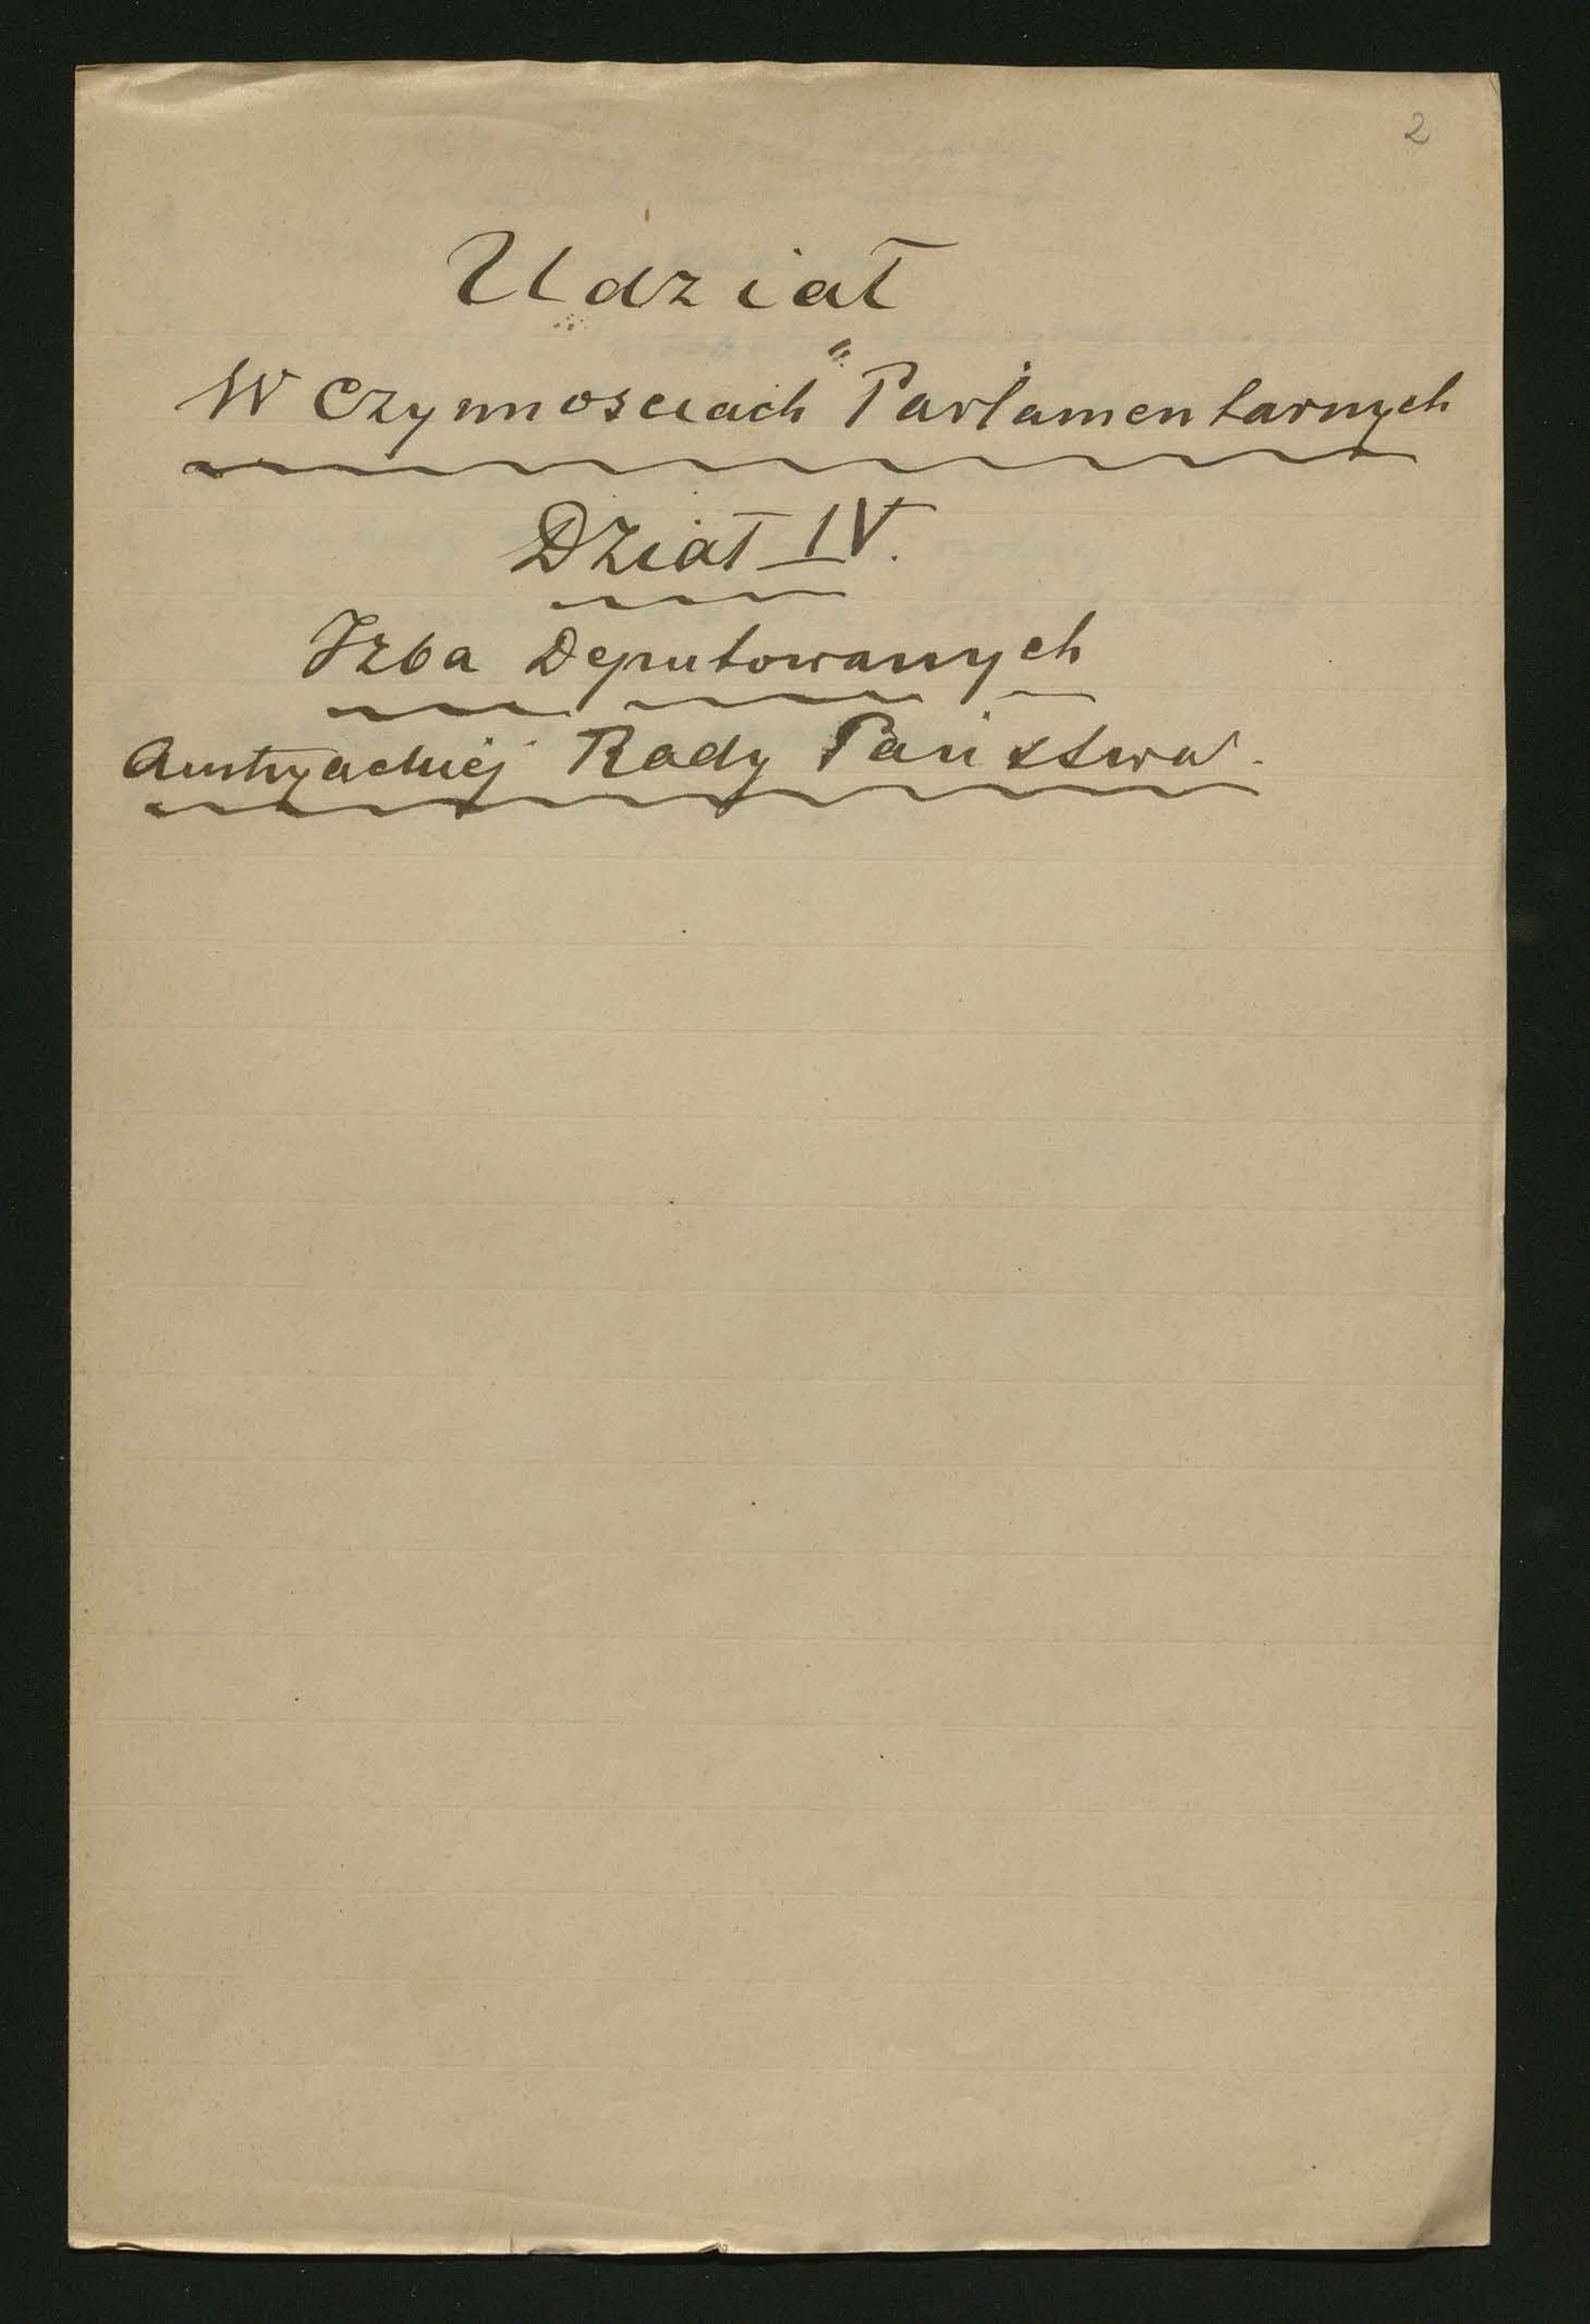 2
Udział
W Czynnosciach Parlamentarnych
Dział IV.
Izba Deputowanych
Austryackiej Rady Państwa.